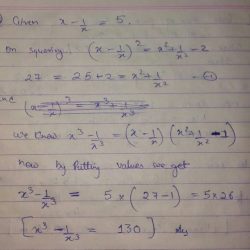 Given x - 1/x = 5.
On squaring (x - 1/x)² = x² + 1/x² - 2
27 = 25+2 = x² + 1/x² —①
(x - 1/x)³ = x³ + 1/x³
We know x³ - 1/x³ = (x - 1/x) (x² + 1/x² - 1)
now by putting values we get
x³ - 1/x³ = 5 × (27-1) = 5×26
[x³ - 1/x³ = 130]